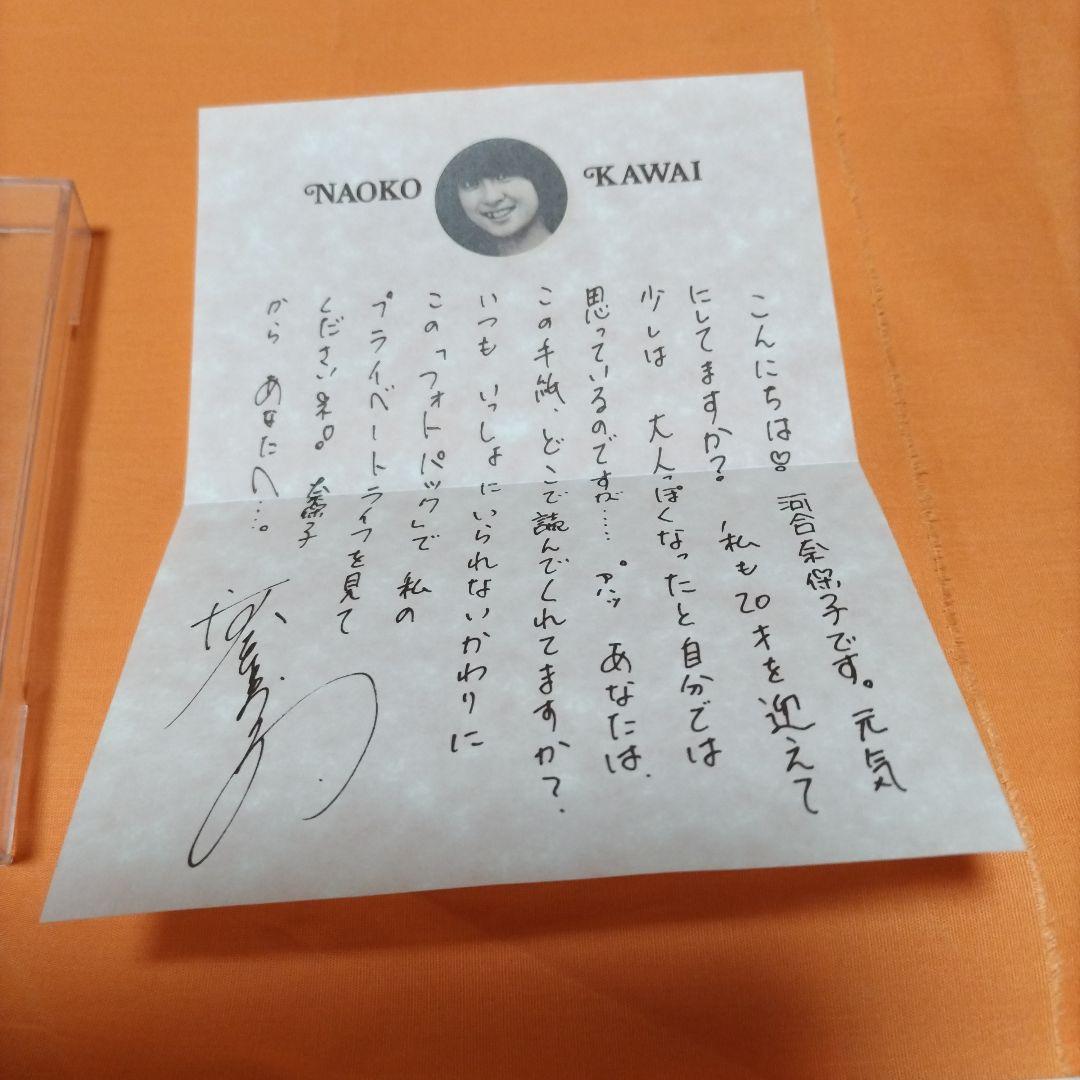 NAOKO KAWAI
こんにちは♡ 河合奈保子です。元気
にしてますか? 私も20才を迎えて
少しは 大人っぽくなったと自分では
思っているのですが…… アッ あなたは、
この手紙、どこで読んでくれてますか?
いつも いっしょにいられないかわりに
この「フォトパック」で 私の
プライベートライフを見て
くださいネ! 奈保子
から あなたへ…。